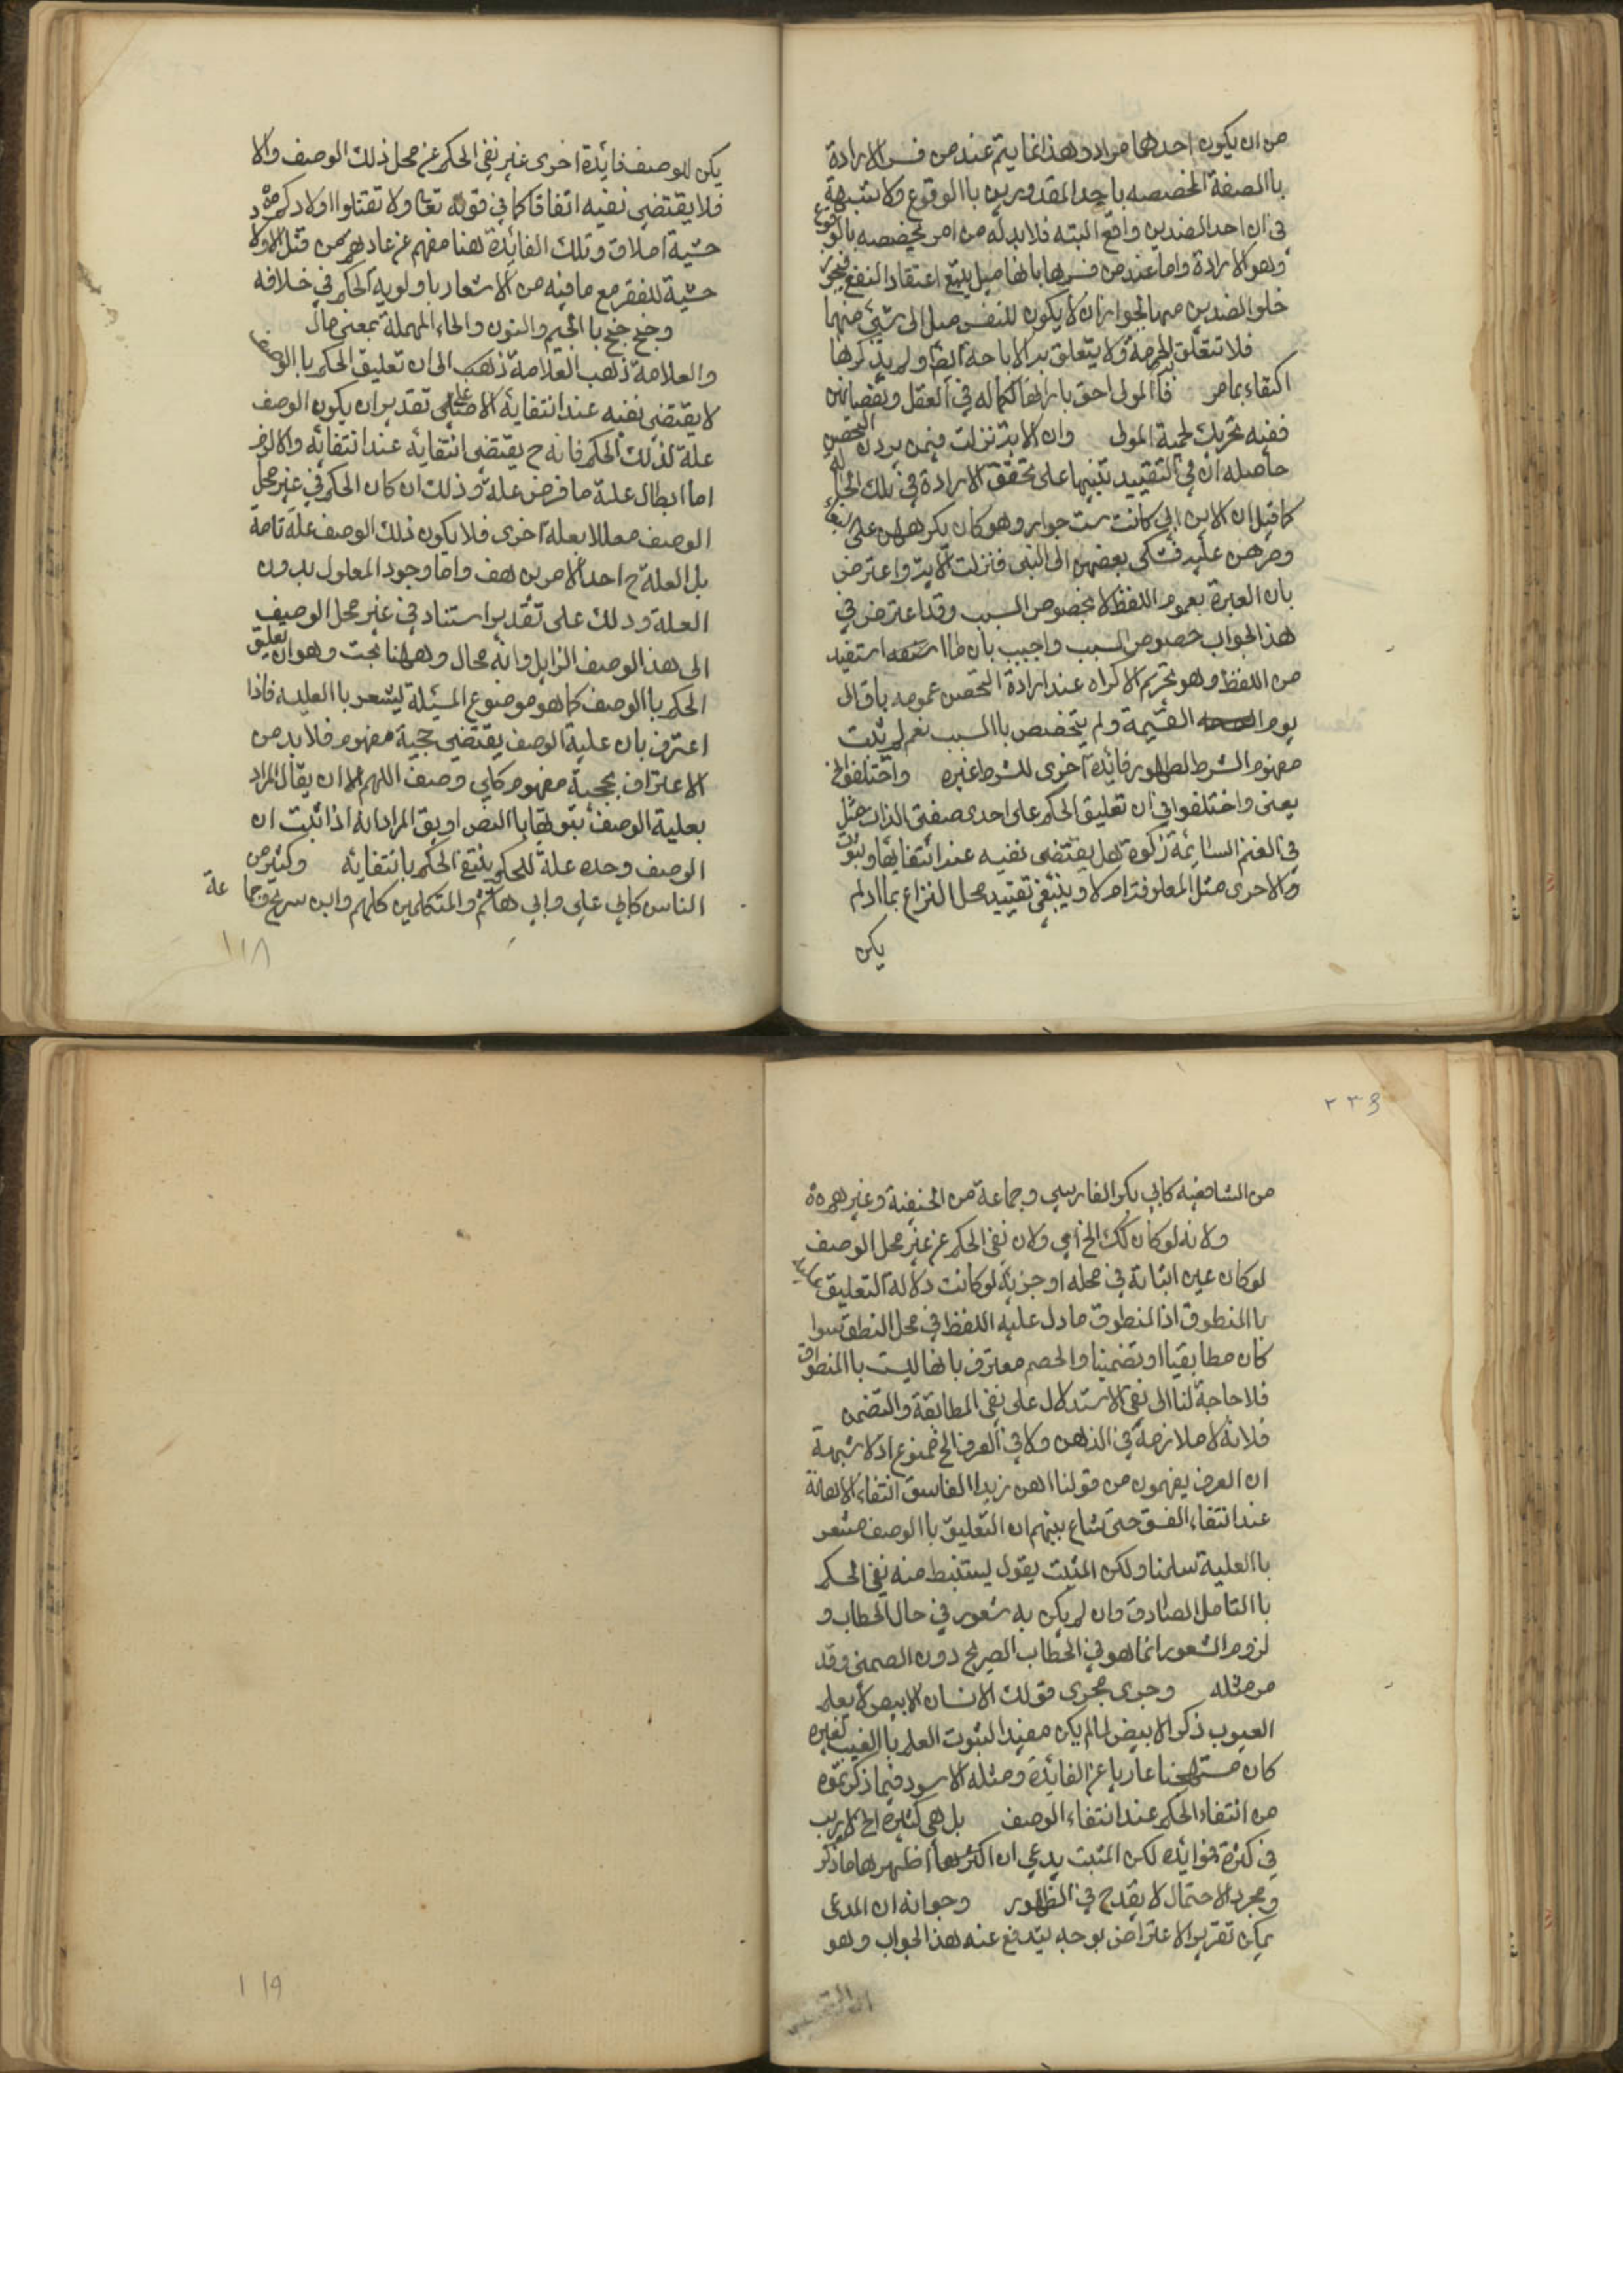 من ان يكون احدهما مراد وهذا انما يتم عند من فسر الارادة
باالصفة المخصصه باحد المقدورين باالوقوع ولا شبهة
في ان احد الضدين واقع البته فلا بد له من امر يخصصه بالوقوع
وهو الارادة واما عند من فسرها بانها ميل يتبع اعتقاد النفع فيجوز
خلو الضدين منها لجواز ان لا يكون للنفس ميل الى شيء منهما
فلا تتعلق الحرمة ولا يتعلق بد الاباحة ايضا ولم يذكرها
اكتفاء بما مر فاالمولى احق بارادتها لكماله في العقل ونقصانهن
ففيه تحريك لحمية المولى وان الاية نزلت فيمن يردن التحصن
حاصله ان في التقييد تنبيها على تحقق الارادة في تلك
كما قيل ان لابن ابي كانت ست جوار وهو كان يكرههن على البغاء
وضربهن عليه فشكى بعضهن الى النبي فنزلت الاية واعترض
بان العبرة بعموم اللفظ لا بخصوص السبب وقد اعترض في
هذا الجواب خصوص السبب واجيب بان ما استفيد
من اللفظ وهو تحريم الاكراه عند ارادة التحصن عمومه باق الى
يوم القيمة ولم يتخصص باالسبب نعم لم يثبت
مفهوم الشرط لظهور فائدة اخرى للشرط غيره واختلفوا الخ
يعني واختلفوا في ان تعليق الحكم على احدى صفتي الذات مثل
في الغنم السائمة زكوة هل يقتضي نفيه عند انتفايها وثبوت
الاخرى مثل المعلوفة ام لا وينبغي تقييد محل النزاع بما اذا لم
يكن
يكن للوصف فائدة اخرى غير نفي الحكم عن محل ذلك الوصف والا
فلا يقتضي نفيه اتفاقا كما في قوله تعا ولا تقتلوا اولادكم
خشية املاق وتلك الفائدة هنا منعهم عن عادتهم من قتل الاولاد
خشية للفقر مع ما فيه من الاشعار باولوية الحكم في خلافه
وجنح جنح باالجيم والنون والحاء المهملة بمعنى مال
والعلامة ذهب العلامة ذهب الى ان تعليق الحكم باالوصف
لا يقتضي نفيه عند انتفايه الا على تقدير ان يكون الوصف
علة لذلك الحكم فانه ح يقتضي انتفايه عند انتفائه والا لزم
اما ابطال علية ما فرض علة وذلك ان كان الحكم في غير محل
الوصف معللا بعلة اخرى فلا يكون ذلك الوصف علة تامة
بل العلة ح احد الامرين هف واما وجود المعلول بدون
العلة وذلك على تقدير استناد في غير محل الوصف
الى هذا الوصف الزايل وانه محال وههنا بحث وهو ان تعليق
الحكم باالوصف كما هو موضوع المسئلة ليشعر باالعلية فاذا
اعترف بان علية الوصف يقتضي حجية مفهوم فلا بد من
الاعتراف بحجية مفهوم كل وصف اللهم الا ان يقال المراد
بعلية الوصف ثبوتها باالنص او بق المراد انه اذا ثبت ان
الوصف وحده علة للحكم ينتفي الحكم بانتفايه وكثير من
الناس كابي علي وابي هاشم والمتكلمين كلهم وابن سريج وجماعة
١١٨
٢٣٩
من الشافعيه كابي بكر الفارسي وجماعة من الحنيفة وغيرهم
ولانه لو كان كك الخ اي ولان نفي الحكم عن غير محل الوصف
لو كان عين اثباته في محله او جزئه لو كانت دلالة التعليق عليه
باالمنطوق اذ المنطوق ما دل عليه اللفظ في محل النطق سوا
كان مطابقيا او تضمنيا والخصم معترف بانها ليست باالمنطوق
فلا حاجة لنا الى نفي الاستدلال على نفي المطابقة والتضمن
فلانه لا ملازمة في الذهن ولا في العرف الخ ممنوع اذ لا شبهة
ان العرف يفهمون من قولنا اهن زيدا الفاسق انتفاء الاهانة
عند انتفاء الفسق حتى شاع بينهم ان التعليق باالوصف مشعر
باالعلية سلمنا ولكن المثبت يقول يستنبط منه نفي الحكم
باالتامل الصادق وان لم يكن به شعور في حال الخطاب و
لزوم الشعور انما هو في الخطاب الصريح دون الضمني وقد
مر مثله وجرى مجرى قولك الانسان الابيض لا يعلم
العيوب ذكر الابيض لما لم يكن مفيدا لثبوت العلم باالغيب لغيره
كان مستهجنا عاريا عن الفائدة ومثله الاسود فيما ذكرتموه
من انتفاء الحكم عند انتفاء الوصف بل هي كثيرة الخ لا ريب
في كثرة فوائده لكن المثبت يدعي ان اكثرها اظهرها ما ذكر
ومجرد الاحتمال لا يقدح في الظهور وجوابه ان المدعى
يمكن تقرير الاعتراض بوجه يندفع عنه هذا الجواب وهو
١١٩